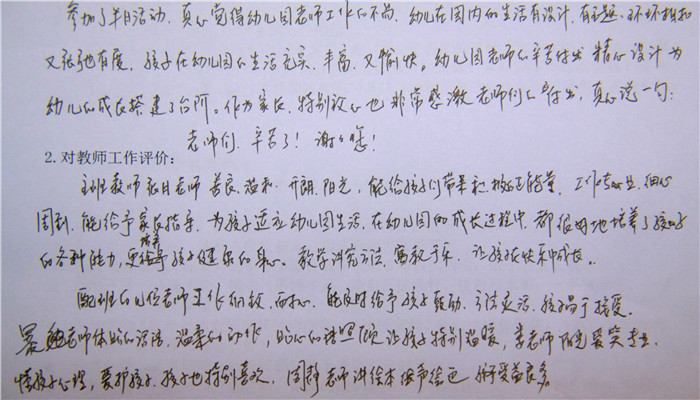 参加了半日活动，真心觉得幼儿园老师工作的不简，幼儿在园内的生活有设计，有主题，环环相扣
又张弛有度，孩子在幼儿园的生活充实、丰富、又愉快。幼儿园老师的辛苦付出 精心设计为
幼儿的成长搭建了台阶。作为家长，特别放心也非常感激老师们的付出，真心说一句：
老师们，辛苦了！谢谢您！
2.对教师工作评价：
主班教师 老师善良、温和、开朗、阳光，能给孩子们带来积极正能量，工作专业、细心
周到，能给予家长指导，为孩子适应幼儿园生活，在幼儿园的成长过程中，都很好地培养了孩子
的各种能力，更给予培养孩子健康的身心。教学讲究方法，寓教于乐，让孩子在快乐中成长。
配班的几位老师工作 细心，能及时给予孩子鼓励，方法灵活，孩子易于接受。
老师体贴的话语，温柔的动作，贴心的 照顾让孩子特别温暖，李老师阳光爱笑专业，
懂孩子心理，爱护孩子，孩子也特别喜欢，周静老师讲绘本绘声绘色 受益良多